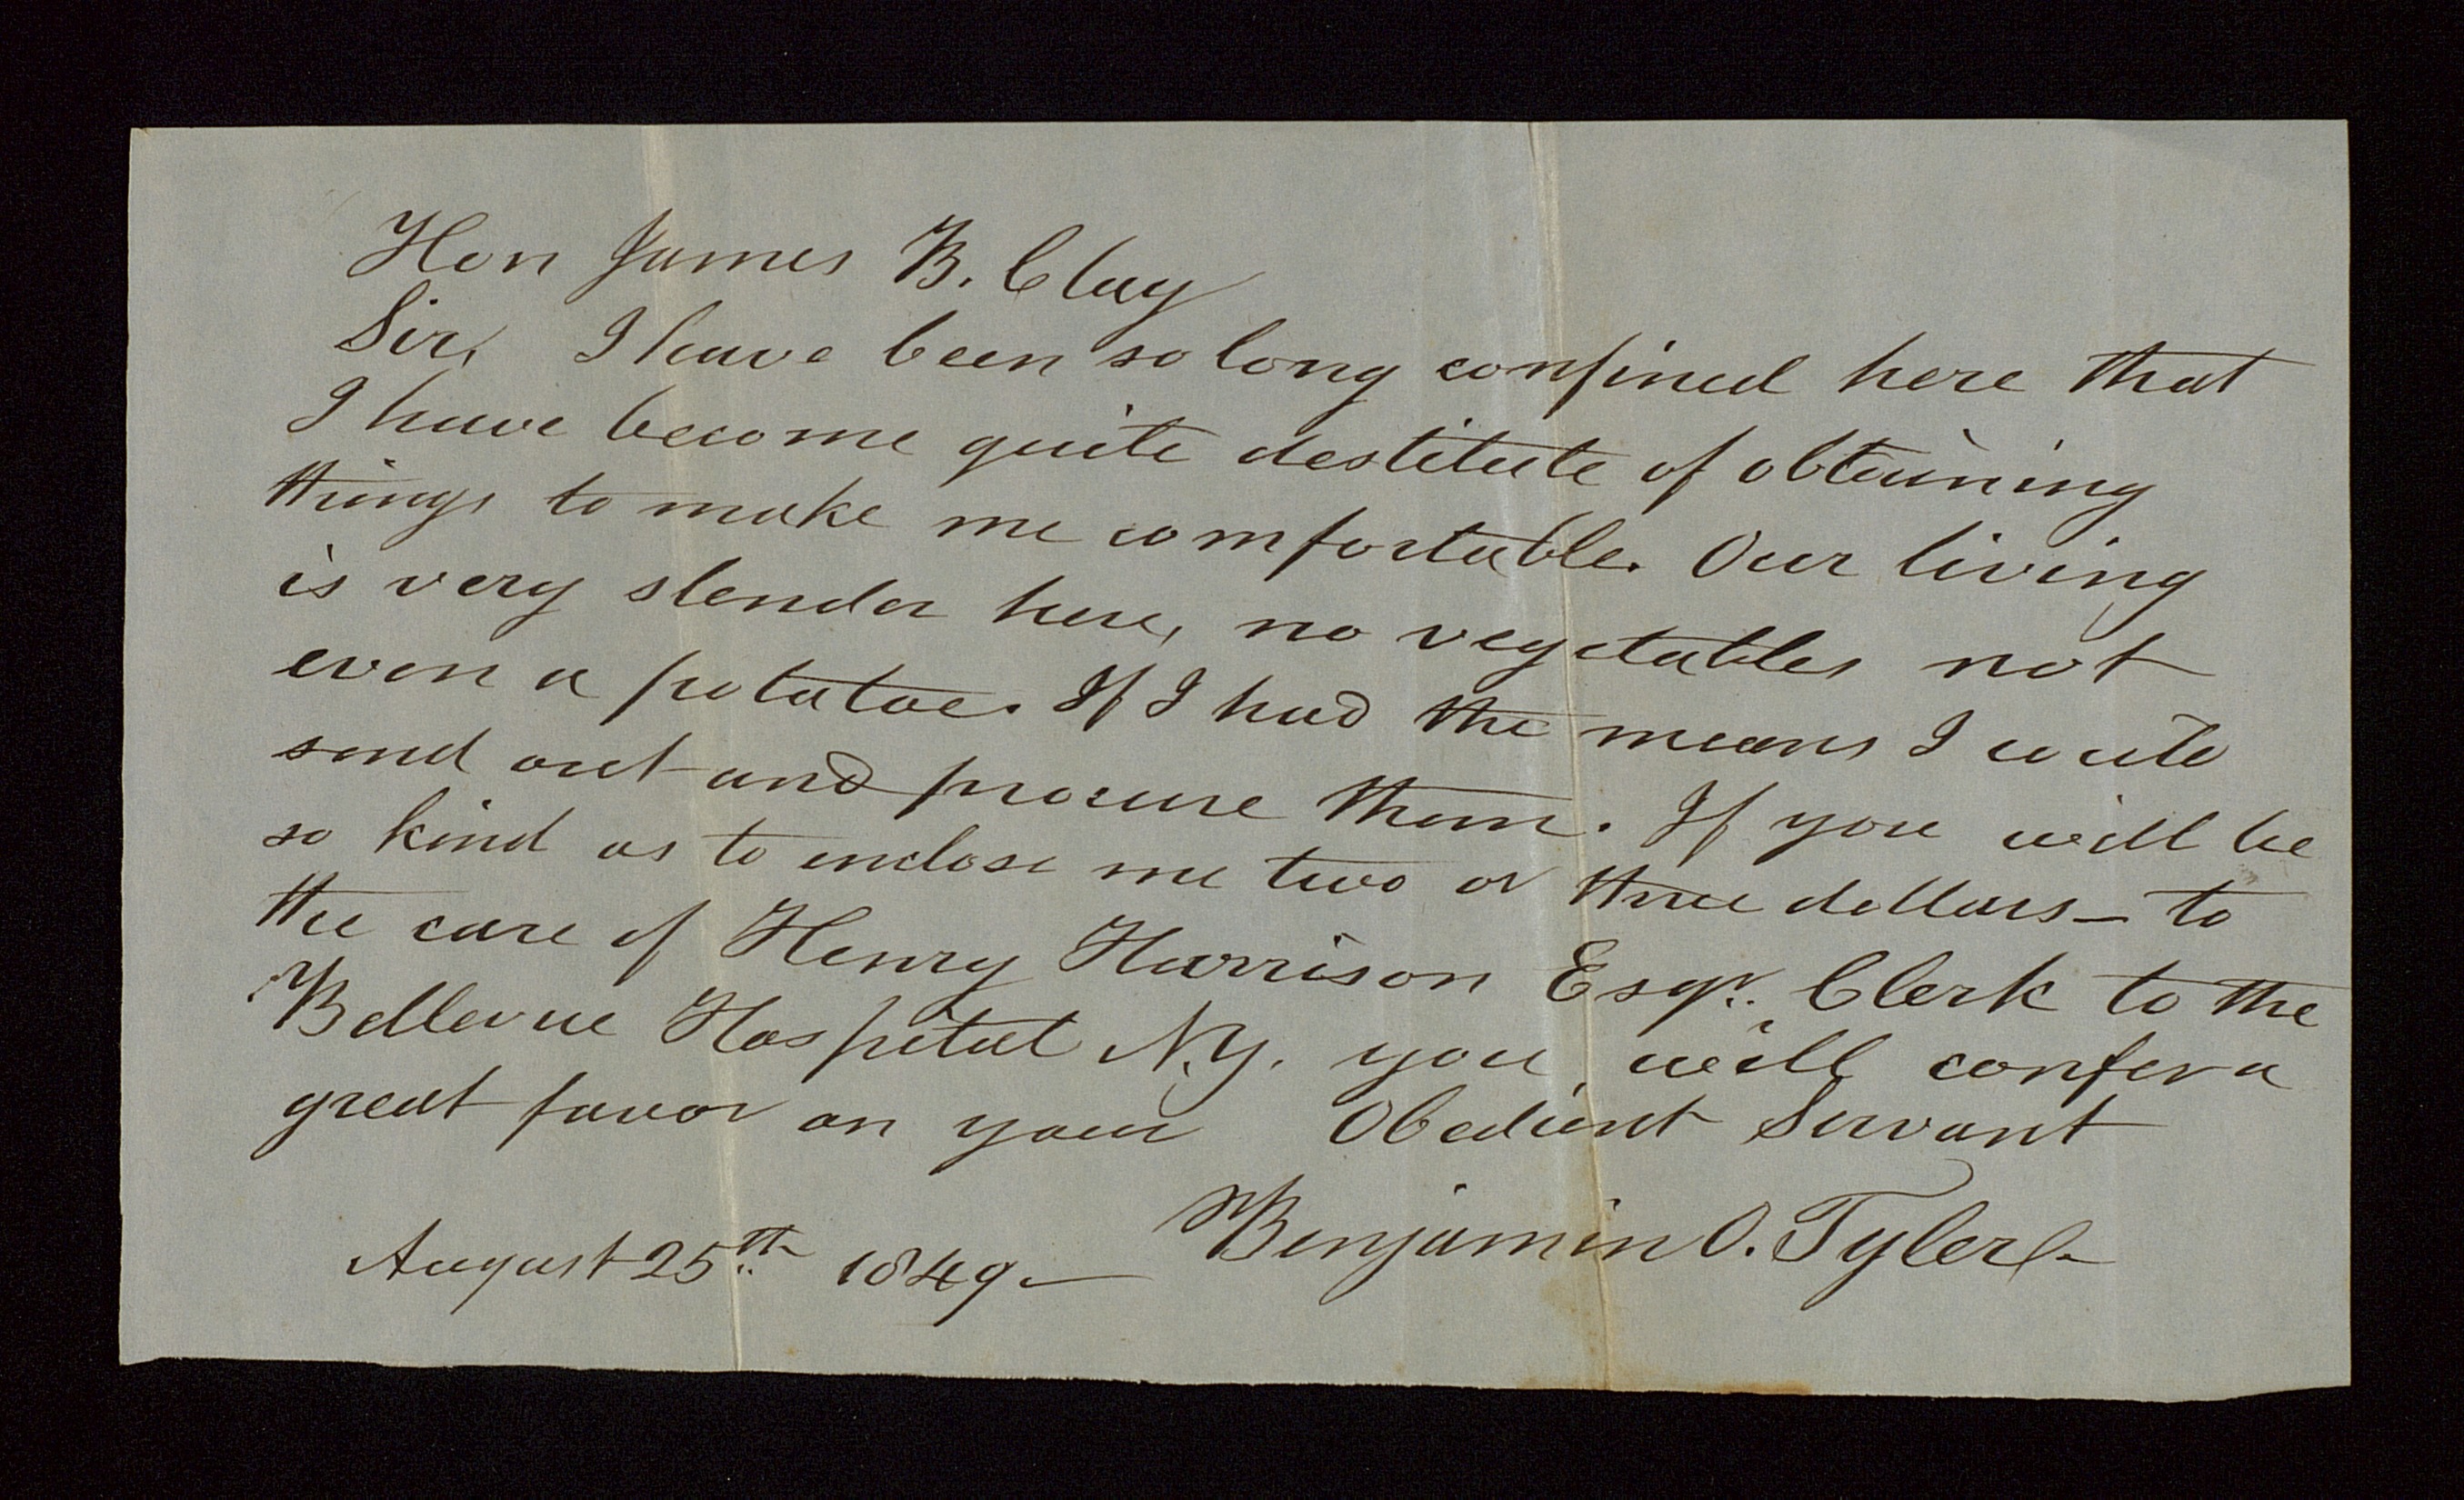 Hon James B. Clay
Sir, I have been so long confined here that
I have become quite destitute of obtaining
things to make me comfortable. Our living
is very slender here, no vegetables not
even a potatoe. If I had the means I
send out and procure them. If you will be
so kind as to enclose me two or three dollars - to
the care of Henry Harrison Esqr. Clerk to the
Bellevue Hospital N.Y. you will confer a
great favor on your Obedient Servant
Benjamin O. Tyler
August 25th 1849 -